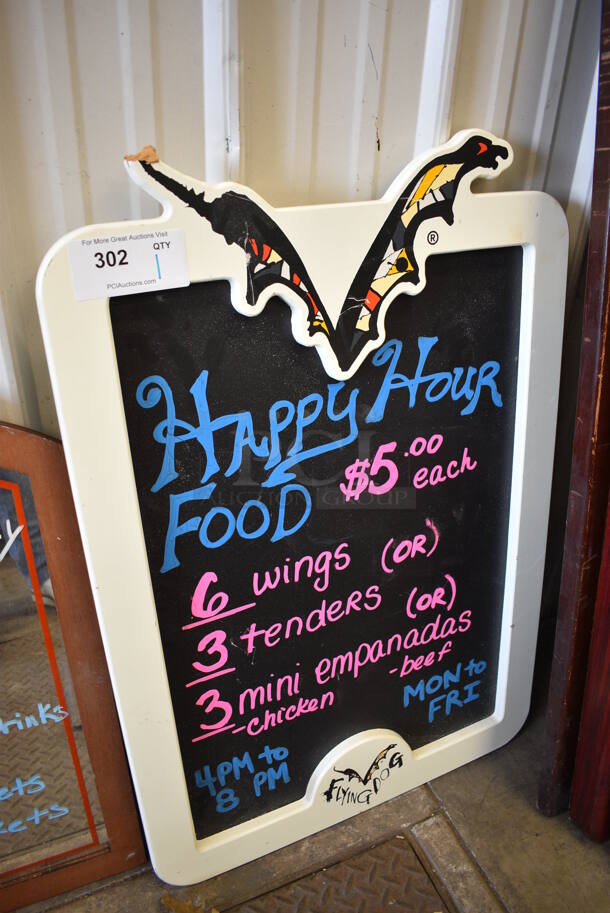 For More Great Auctions Visit
302
QTY
1
PCIAuctions.com
®
Happy Hour
Food $5.00 each
6 wings (OR)
3 tenders (OR)
3 mini empanadas
-chicken -beef
4PM to
8 PM
MON to
FRI
FLYING DOG
PCI
AUCTION GROUP